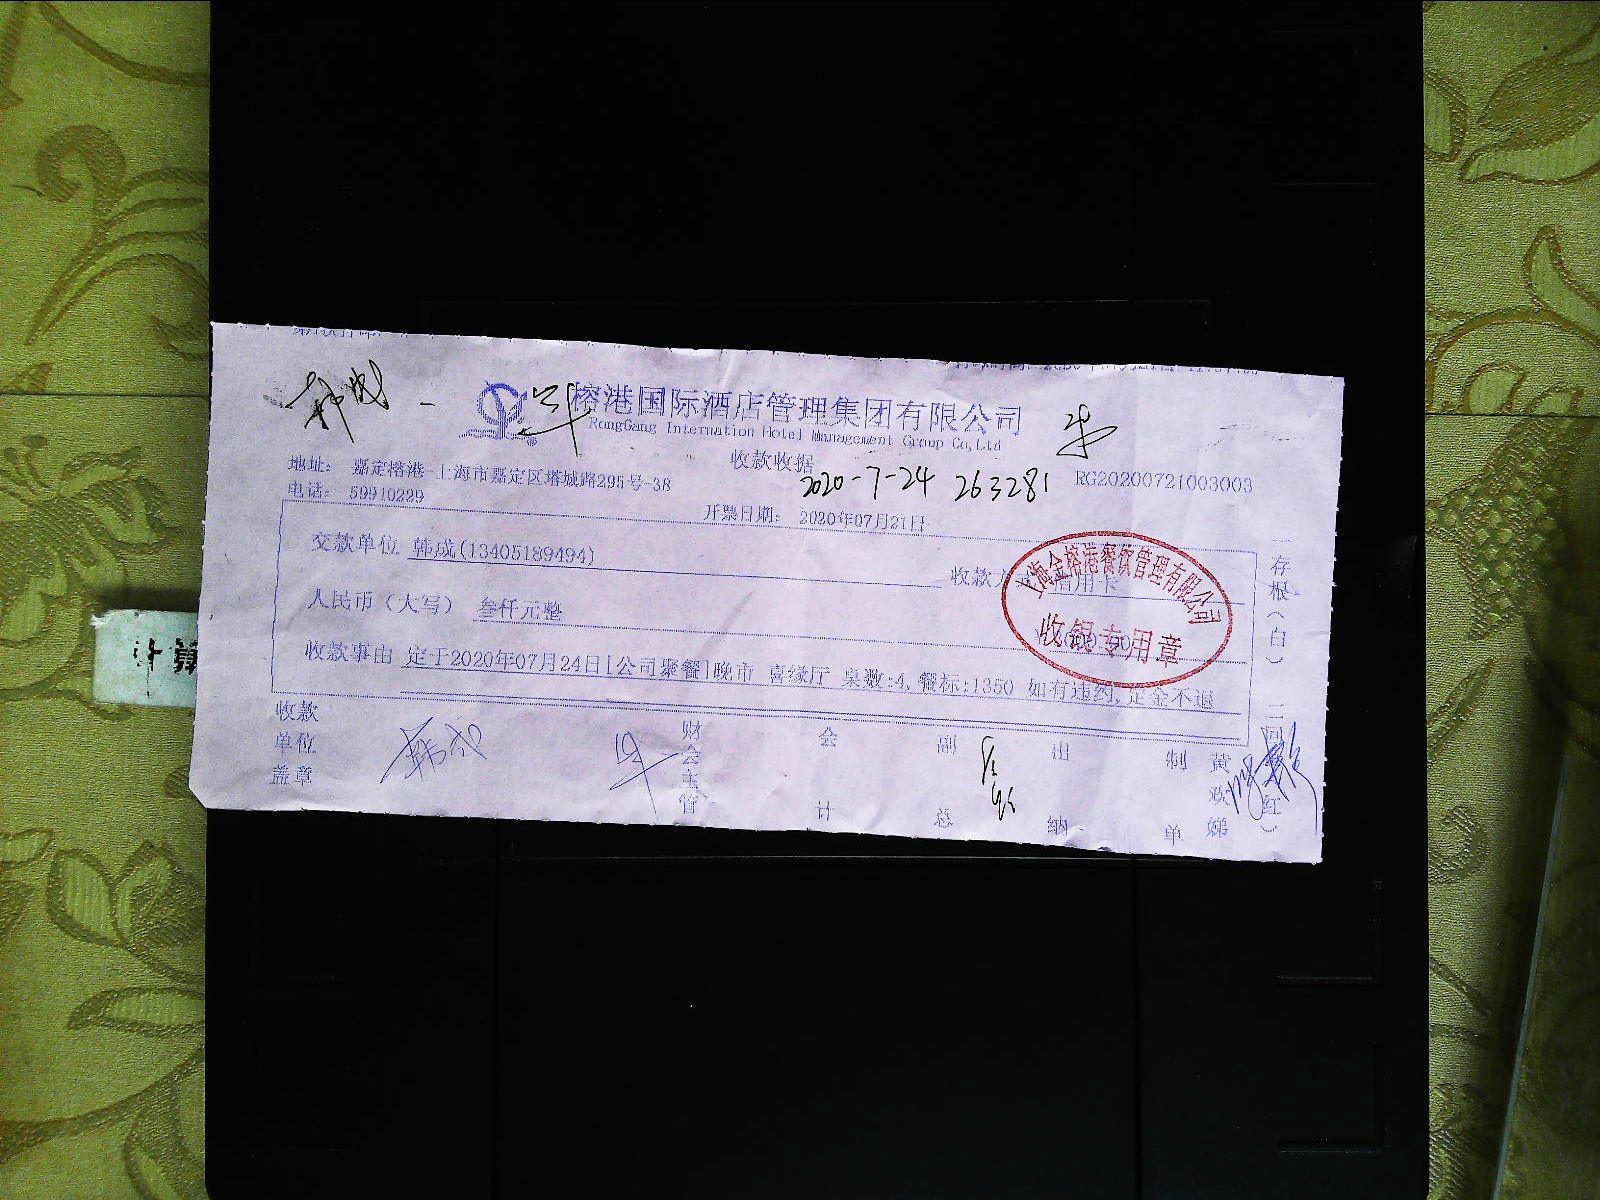 榕港国际酒店管理集团有限公司
RongGang Internation Hotel Management Group Co,Ltd
收款收据
2020-7-24 263281
RG20200721003003
地址： 嘉定榕港 上海市嘉定区塔城路295号-38
电话： 59910229
开票日期： 2020年07月21日
交款单位 韩成(13405189494)
收款 信用卡
人民币（大写） 叁仟元整
上海金榕港餐饮管理有限公司
收银专用章
收款事由 定于2020年07月24日[公司聚餐]晚市 喜缘厅 桌数:4,餐标:1350 如有违约,定金不退
收款单位盖章
韩成
财会主管
会计
副总
出纳
制单
黄
娣
一存根（白）二
红）
计算